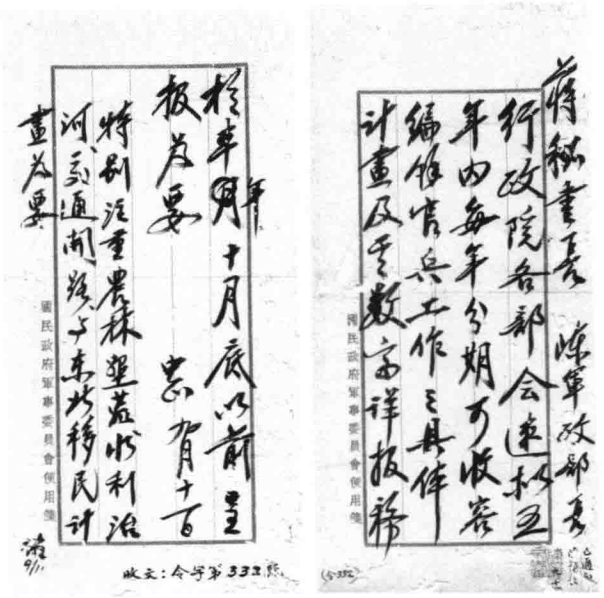 蔣秘書長 陳軍政部長
行政院各部會速擬五
年內每年分期可收容
編餘官兵工作之具體
計畫及其數字詳報務
國民政府軍事委員會便用箋
(令332)
於本年十月底以前呈
報為要 中正 九月十一日
特別注重農林墾荒水利治
河、交通開路與東北移民計
畫為要
國民政府軍事委員會便用箋
9/11
收文:令字第333號